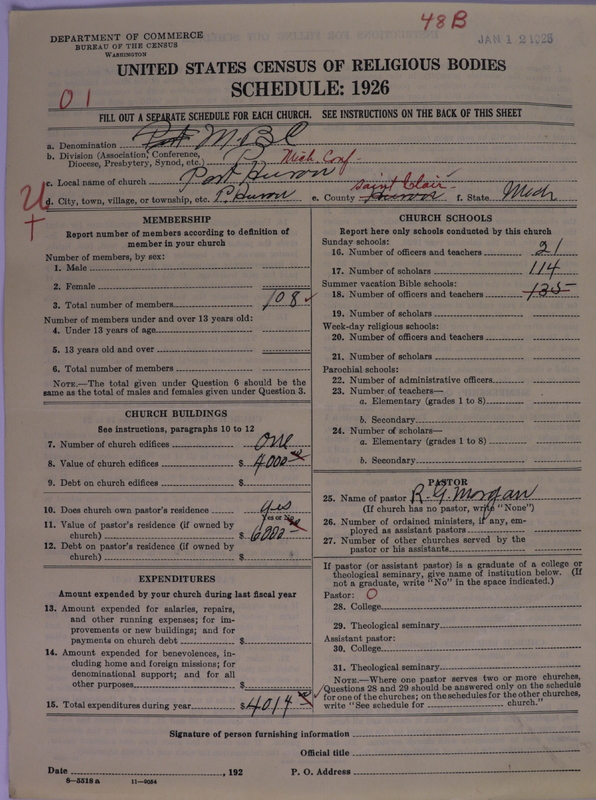 48B
JAN 12 1928
DEPARTMENT OF COMMERCE
BUREAU OF THE CENSUS
WASHINGTON
UNITED STATES CENSUS OF RELIGIOUS BODIES
SCHEDULE: 1926
01
FILL OUT A SEPARATE SCHEDULE FOR EACH CHURCH. SEE INSTRUCTIONS ON THE BACK OF THIS SHEET
a. Denomination
b. Division (Association, Conference, Diocese, Presbytery, Synod, etc.) Mich. Conf-
c. Local name of church Port Huron
d. City, town, village, or township, etc. P. Huron e. County Saint Clair f. State Mich
MEMBERSHIP
Report number of members according to definition of
member in your church
Number of members, by sex:
1. Male
2. Female
3. Total number of members 108
Number of members under and over 13 years old:
4. Under 13 years of age
5. 13 years old and over
6. Total number of members
NOTE.—The total given under Question 6 should be
same as the total of males and females given under Question 3.
CHURCH BUILDINGS
See instructions, paragraphs 10 to 12
7. Number of church edifices one
8. Value of church edifices $4000
9. Debt on church edifices $
10. Does church own pastor's residence yes
Yes or No
11. Value of pastor's residence (if owned by
church) $6000
12. Debt on pastor's residence (if owned by
church) $
EXPENDITURES
Amount expended by your church during last fiscal year
13. Amount expended for salaries, repairs,
and other running expenses; for im-
provements or new buildings; and for
payments on church debt $
14. Amount expended for benevolences, in-
cluding home and foreign missions; for
denominational support; and for all
other purposes $
15. Total expenditures during year $4014
CHURCH SCHOOLS
Report here only schools conducted by this church
Sunday schools:
16. Number of officers and teachers 21
17. Number of scholars 114
Summer vacation Bible schools:
18. Number of officers and teachers 135
19. Number of scholars
Week-day religious schools:
20. Number of officers and teachers
21. Number of scholars
Parochial schools:
22. Number of administrative officers
23. Number of teachers—
a. Elementary (grades 1 to 8)
b. Secondary
24. Number of scholars—
a. Elementary (grades 1 to 8)
b. Secondary
PASTOR
25. Name of pastor R. G. Morgan
(If church has no pastor, write "None")
26. Number of ordained ministers, if any, em-
ployed as assistant pastors
27. Number of other churches served by the
pastor or his assistants
If pastor (or assistant pastor) is a graduate of a college or
theological seminary, give name of institution below. (If
not a graduate, write "No" in the space indicated.)
Pastor: O
28. College
29. Theological seminary
Assistant pastor:
30. College
31. Theological seminary
NOTE.—Where one pastor serves two or more churches,
Questions 28 and 29 should be answered only on the schedule
for one of the churches; on the schedules for the other churches,
write "See schedule for church."
Signature of person furnishing information
Official title
Date , 192 P. O. Address
8—5518 a 11—9054